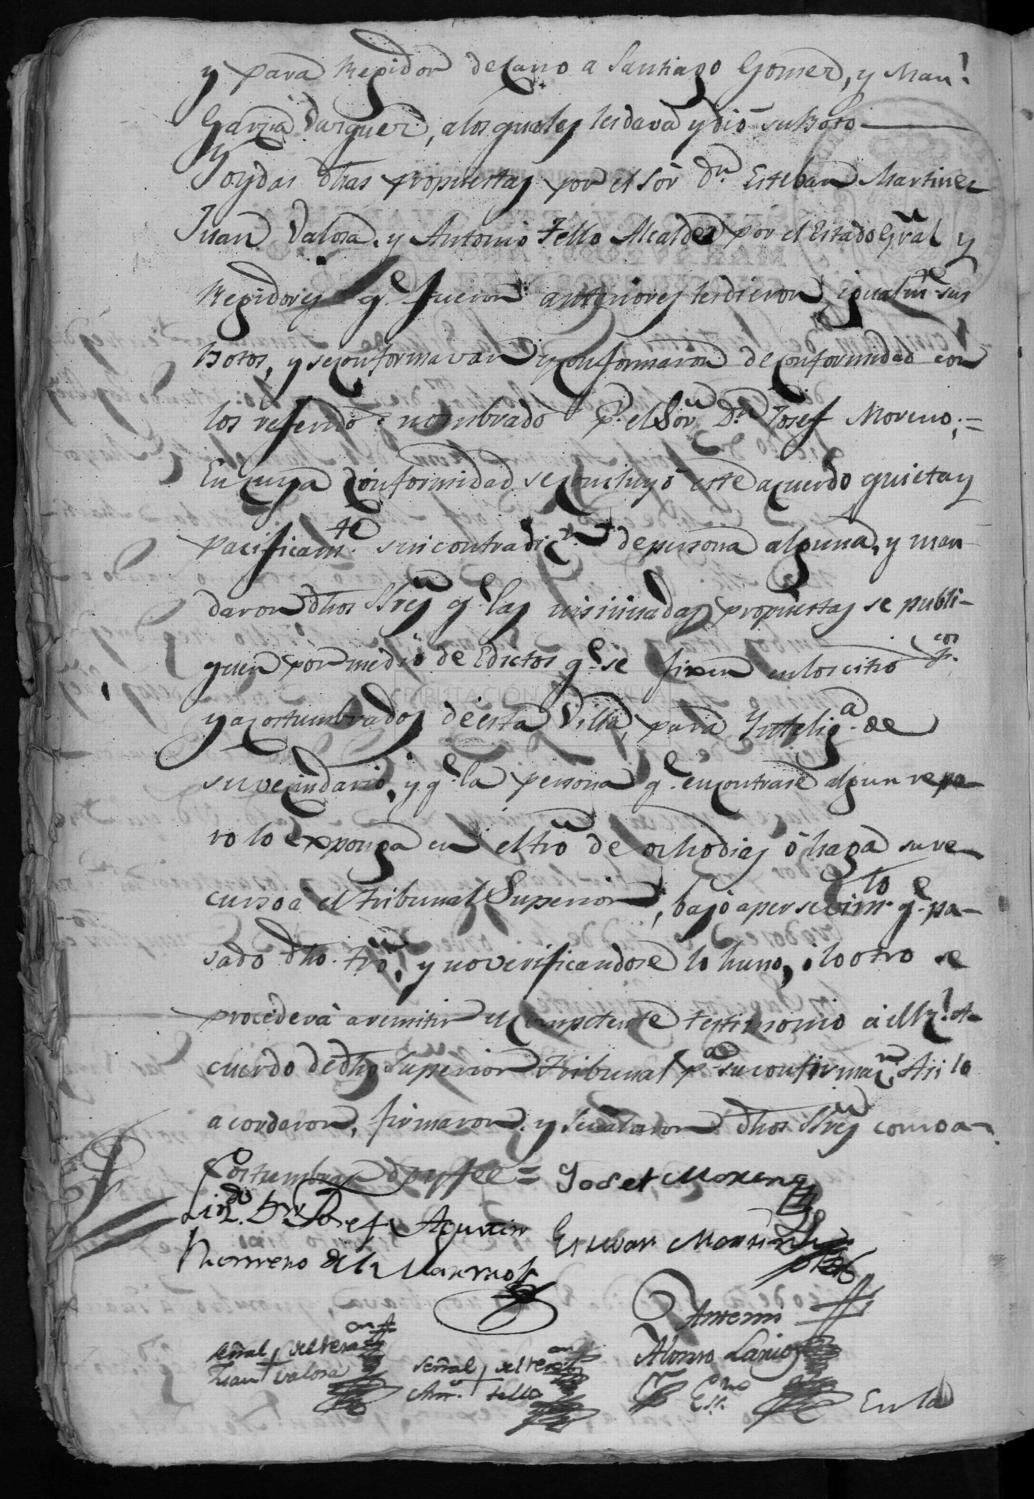 y para Regidor decano a Santiago Gomez, y Man.l
Garzia Varquez, alos quales lesdava y dió su Boto
Y oydas dhas propuestas por el Sôr Dn. Esteban Martinez
Juan Valosa, y Antonio Tello Alcaldes por el Estado Gral y
Regidores q.e fueron anteriores lesdieron igualm.te sus
Botos, y seconformavan y conformaron de conformidad con
los referido s nombrado P.r el Sor. Dn. Josef Moreno;=
En cuya conformidad se concluyó este acuerdo quieta y
pacificam.te sin contradic.n de persona alguna, y man-
daron dhos Sres q.e las insinuadas propuestas se publi-
quen por medio de Edictos q.e se fixen en los citio s
y acostumbrados de esta Villa, para Yntelig.a de
su vecindario, y q.e la persona q.e encontrase algun repa-
ro lo exponga en el trño de ocho dias ó haga su re-
curso à el tribunal Superior, bajo apersevim.to q.e pa-
sado dho. trño, y no verificandose lo huno, o lo otro se
procederà a remitir el competente testimonio à el R.l A-
cuerdo de dho Superior Tribunal p.a su confirmaz.n Asi lo
acordaron, firmaron y señalaron dhos Sres como a-
costumbran doy fee = Josef Moreno
Liz.do Dn Josef Agustin
Esteban Martinez
Morreno de la
Antemi
señal + de
Juan Valosa
señal + de
Ant.o tello
Alonso
Es.no
En la